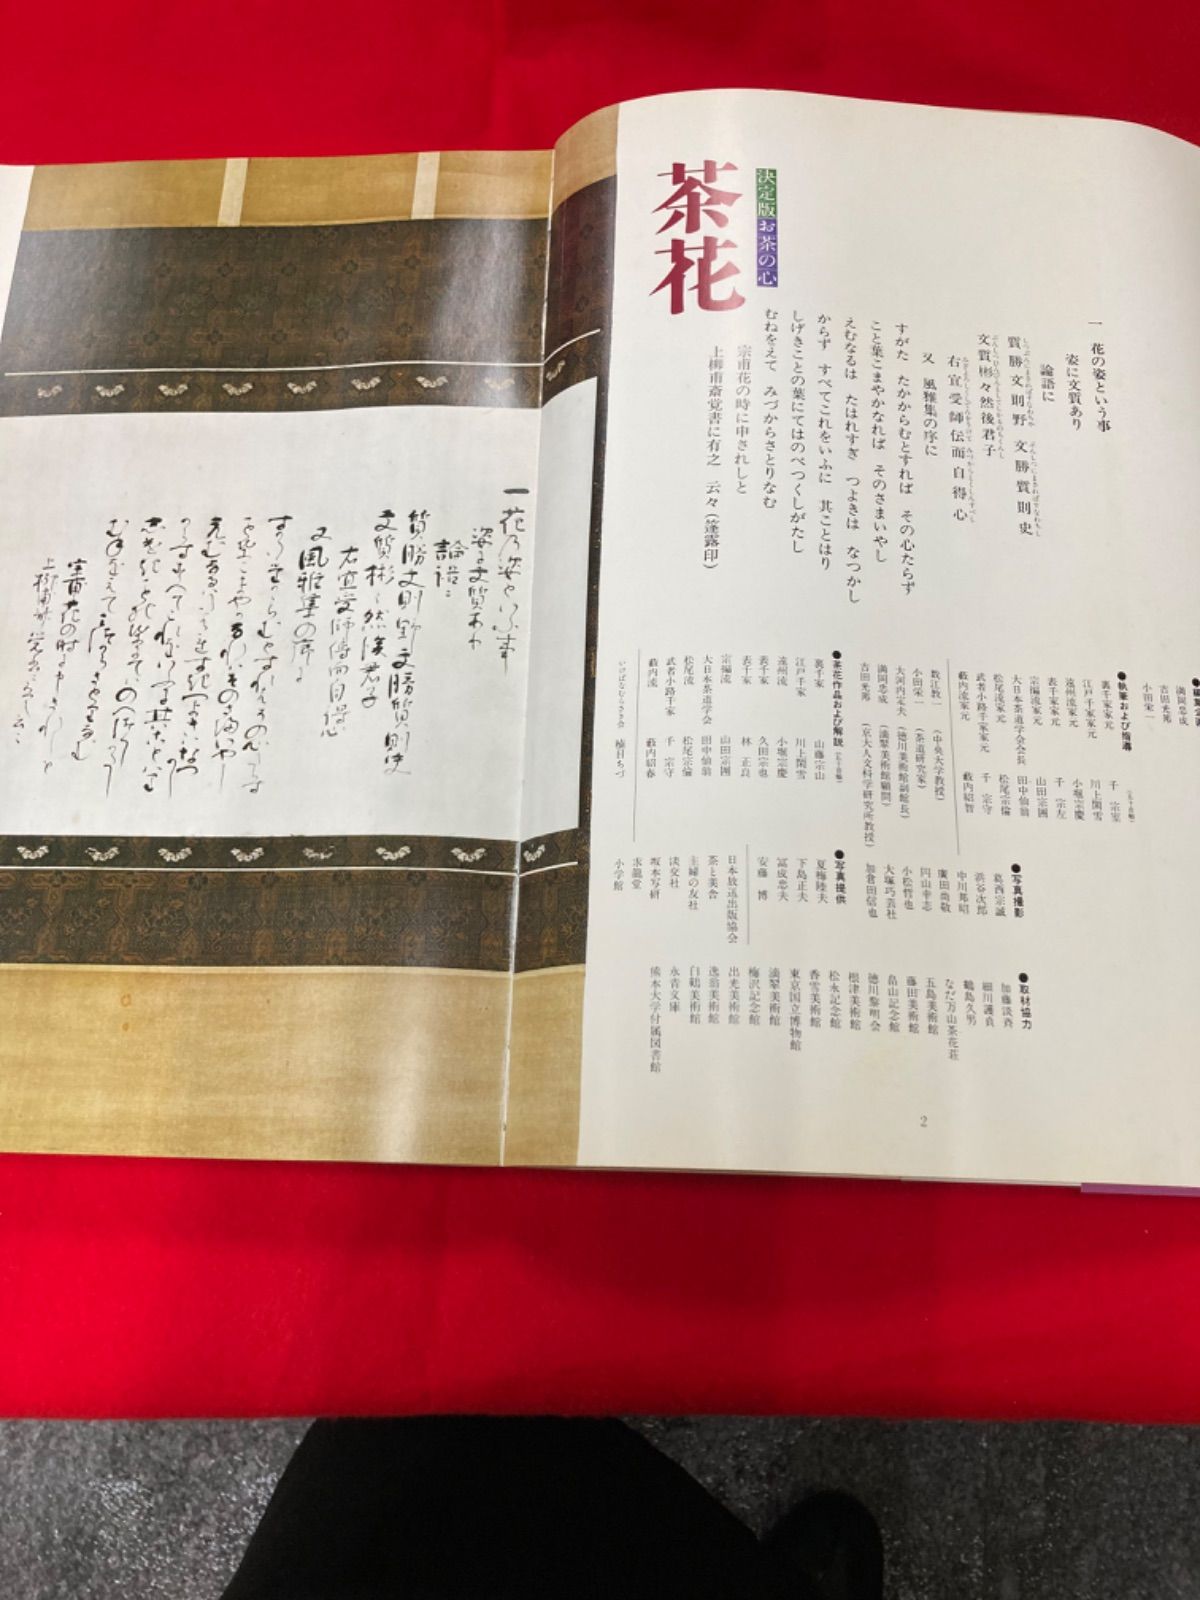 決定版 お茶の心
茶花
一 花の姿という事
姿に文質あり
論語に
質勝文則野 文勝質則史
文質彬々然後君子
右宜受師伝而自得心
又 風雅集の序に
すがた たかからむとすれば その心たらず
こと葉こまやかなれば そのさまいやし
えむなるは たはれすぎ つよきは なつかし
からず すべてこれをいふに 其ことはり
しげきことの葉にてはのべつくしがたし
むねをえて みづからさとりなむ
宗甫花の時に申されしと
上柳甫斎覚書に有之 云々(篷露印)
満岡忠成
吉田光邦
小田栄一
●執筆および指導(五十音順)
裏千家家元 千 宗室
江戸千家家元 川上閑雪
遠州流家元 小堀宗慶
表千家家元 千 宗左
宗徧流家元 山田宗囲
大日本茶道学会会長 田中仙翁
松尾流家元 松尾宗倫
武者小路千家家元 千 宗守
藪内流家元 藪内紹智
数江教一(中央大学教授)
小田栄一(茶道研究家)
大河内定夫(徳川美術館副館長)
満岡忠成(滴翠美術館顧問)
吉田光邦(京大人文科学研究所教授)
●茶花作品および解説(五十音順)
裏千家 山藤宗山
江戸千家 川上閑雪
遠州流 小堀宗慶
表千家 久田宗也
表千家 林 正良
宗徧流 山田宗囲
大日本茶道学会 田中仙翁
松尾流 松尾宗倫
武者小路千家 千 宗守
藪内流 藪内紹春
いけばなむらさき会 植日ちづ
●写真撮影
葛西宗誠
浜谷次郎
中川邦昭
廣田尚敬
円山幸志
小松哲也
大塚巧芸社
加倉田信也
●写真提供
夏梅陸夫
下島正夫
冨成忠夫
安藤 博
日本放送出版協会
茶と美舎
主婦の友社
淡交社
坂本写研
求龍堂
小学館
●取材協力
加藤淡斎
細川護貞
鶴島久男
なだ万山茶花荘
五島美術館
藤田美術館
畠山記念館
徳川黎明会
根津美術館
松永記念館
香雪美術館
東京国立博物館
滴翠美術館
梅沢記念館
出光美術館
逸翁美術館
白鶴美術館
永青文庫
熊本大学付属図書館
2
一花乃姿といふ事
姿に文質あり
論語ニ
質勝文則野 文勝質則史
文質彬々然後君子
右宜受師傳而自得心
又風雅集の序に